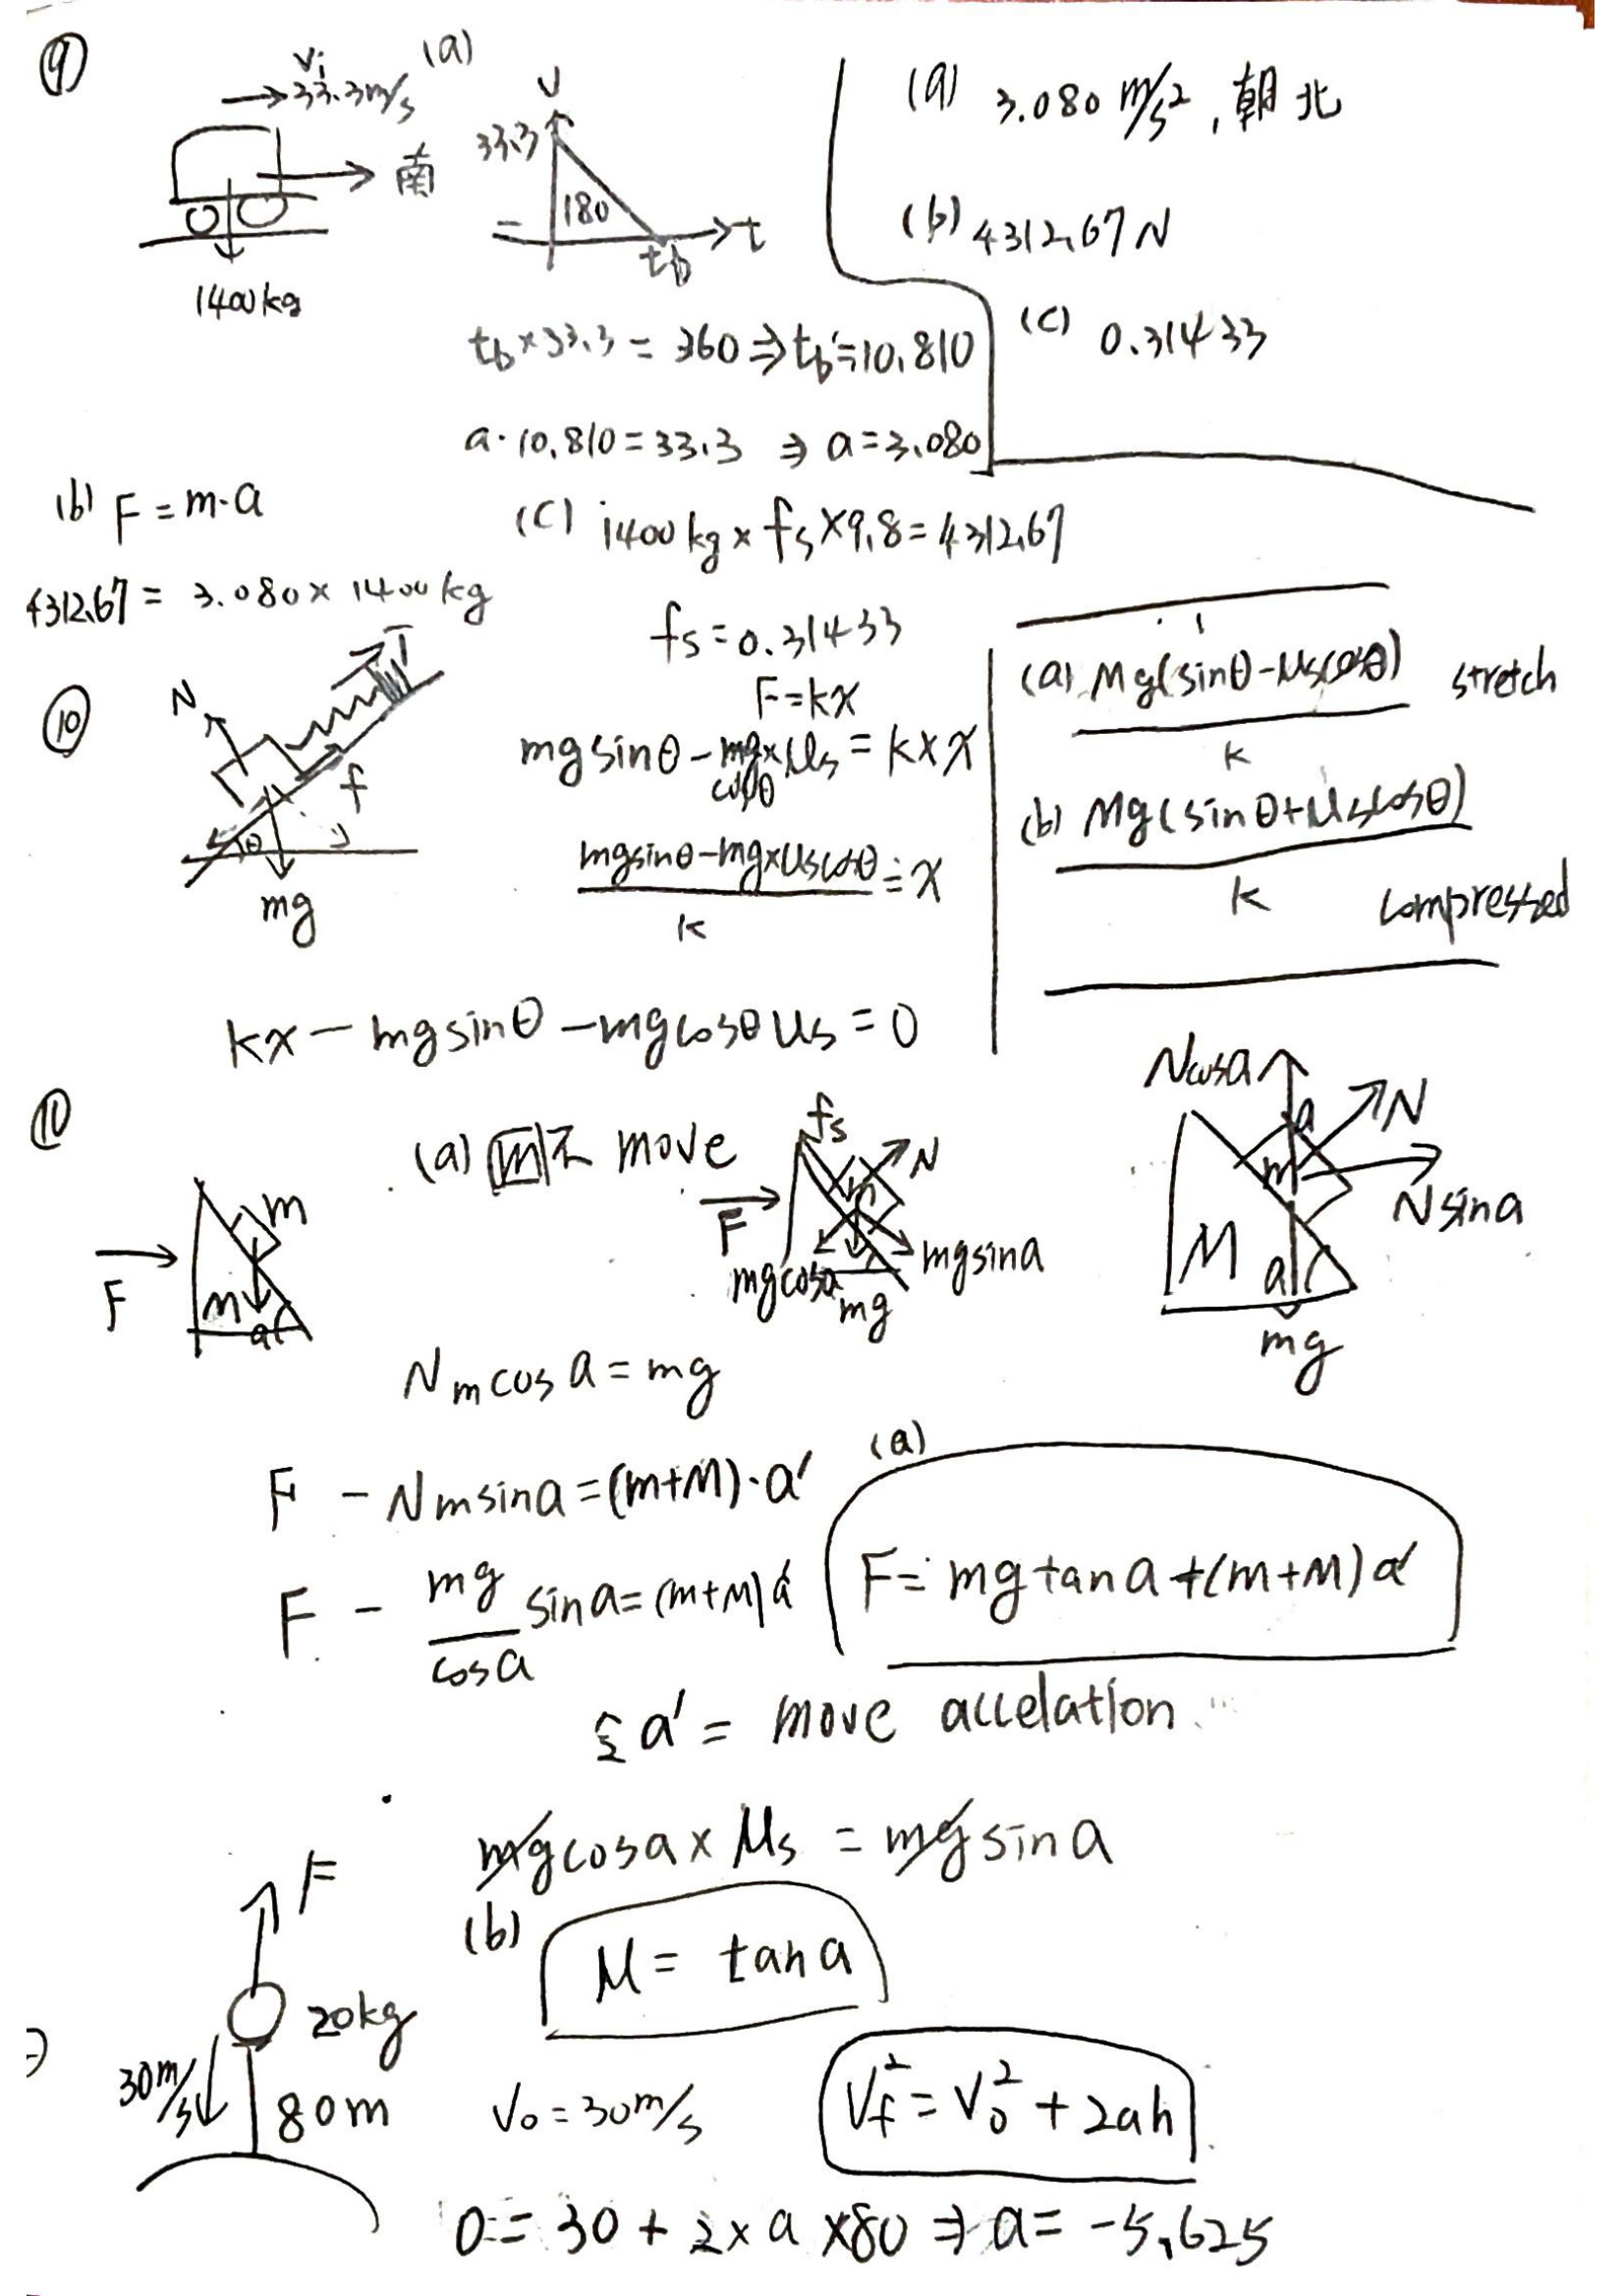 ⑨
(a)
Vi
33.3m/s
南
1400kg
V
33.3
180
tb
t
tb×33.3 = 360 ⇒ tb≒10.810
a·10.810 = 33.3 ⇒ a=3.080
(a) 3.080 m/s², 朝北
(b) 4312.67 N
(c) 0.31433
(b) F = m·a
4312.67 = 3.080 × 1400 kg
(C) 1400 kg × fs × 9.8 = 4312.67
fs = 0.31433
⑩
N
f
θ
mg
F = kx
mg sinθ - mg×μs = k×x
cosθ
mgsinθ-mg×μscosθ = x
k
(a) Mg(sinθ-μscosθ) stretch
k
(b) Mg(sinθ+μscosθ)
k compressed
kx - mgsinθ - mgcosθ μs = 0
⑪
F
m
M
a
(a) m 不 move
fs
N
m
F
mgcosa
mg
mgsina
Ncosa
a
N
m
Nsina
M
a
mg
Nm cos a = mg
F - Nmsina = (m+M)·a'
F - mg/cosa sina = (m+M)a'
(a)
F = mg tana + (m+M)a'
a' = move accelation
mgcosa × μs = mgsina
(b)
M = tana
F
20kg
30m/s
80m
V₀ = 30m/s
Vf² = V₀² + 2ah
0 = 30 + 2 × a × 80 ⇒ a = -5.625